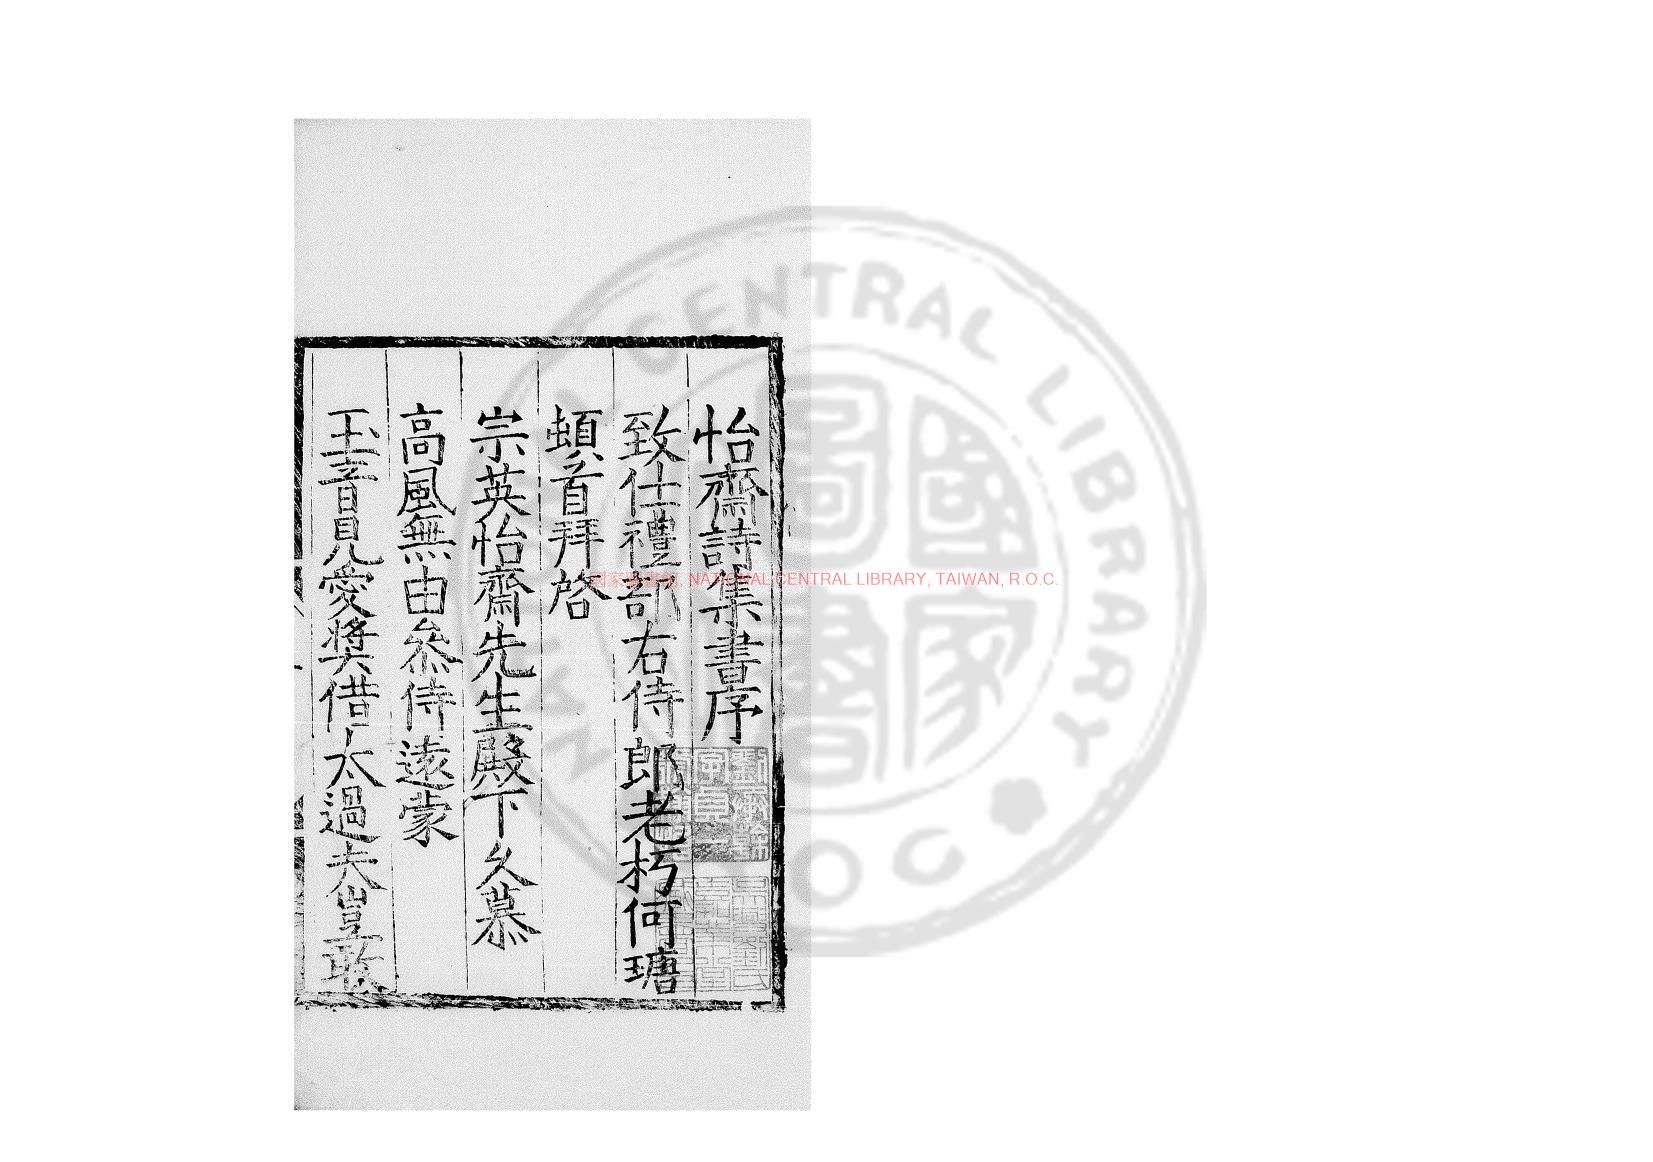 怡齋詩集書序
致仕禮部右侍郎老朽何瑭
頓首拜啓
宗英怡齋先生殿下久慕
高風無由叅侍遠蒙
玉音見愛奬借太過夫豈敢
國家圖書館, NATIONAL CENTRAL LIBRARY, TAIWAN, R.O.C.
NATIONAL CENTRAL LIBRARY
R.O.C.
國家圖書館